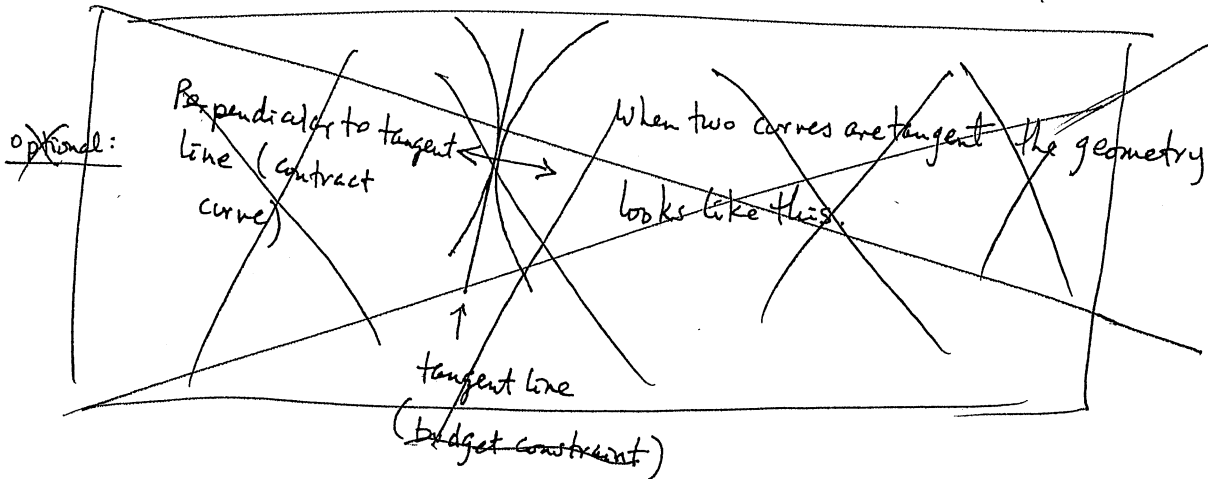 optional:
Perpendicular to tangent
line (contract
curve)
When two curves are tangent the geometry
looks like this.
tangent line
(budget constraint)